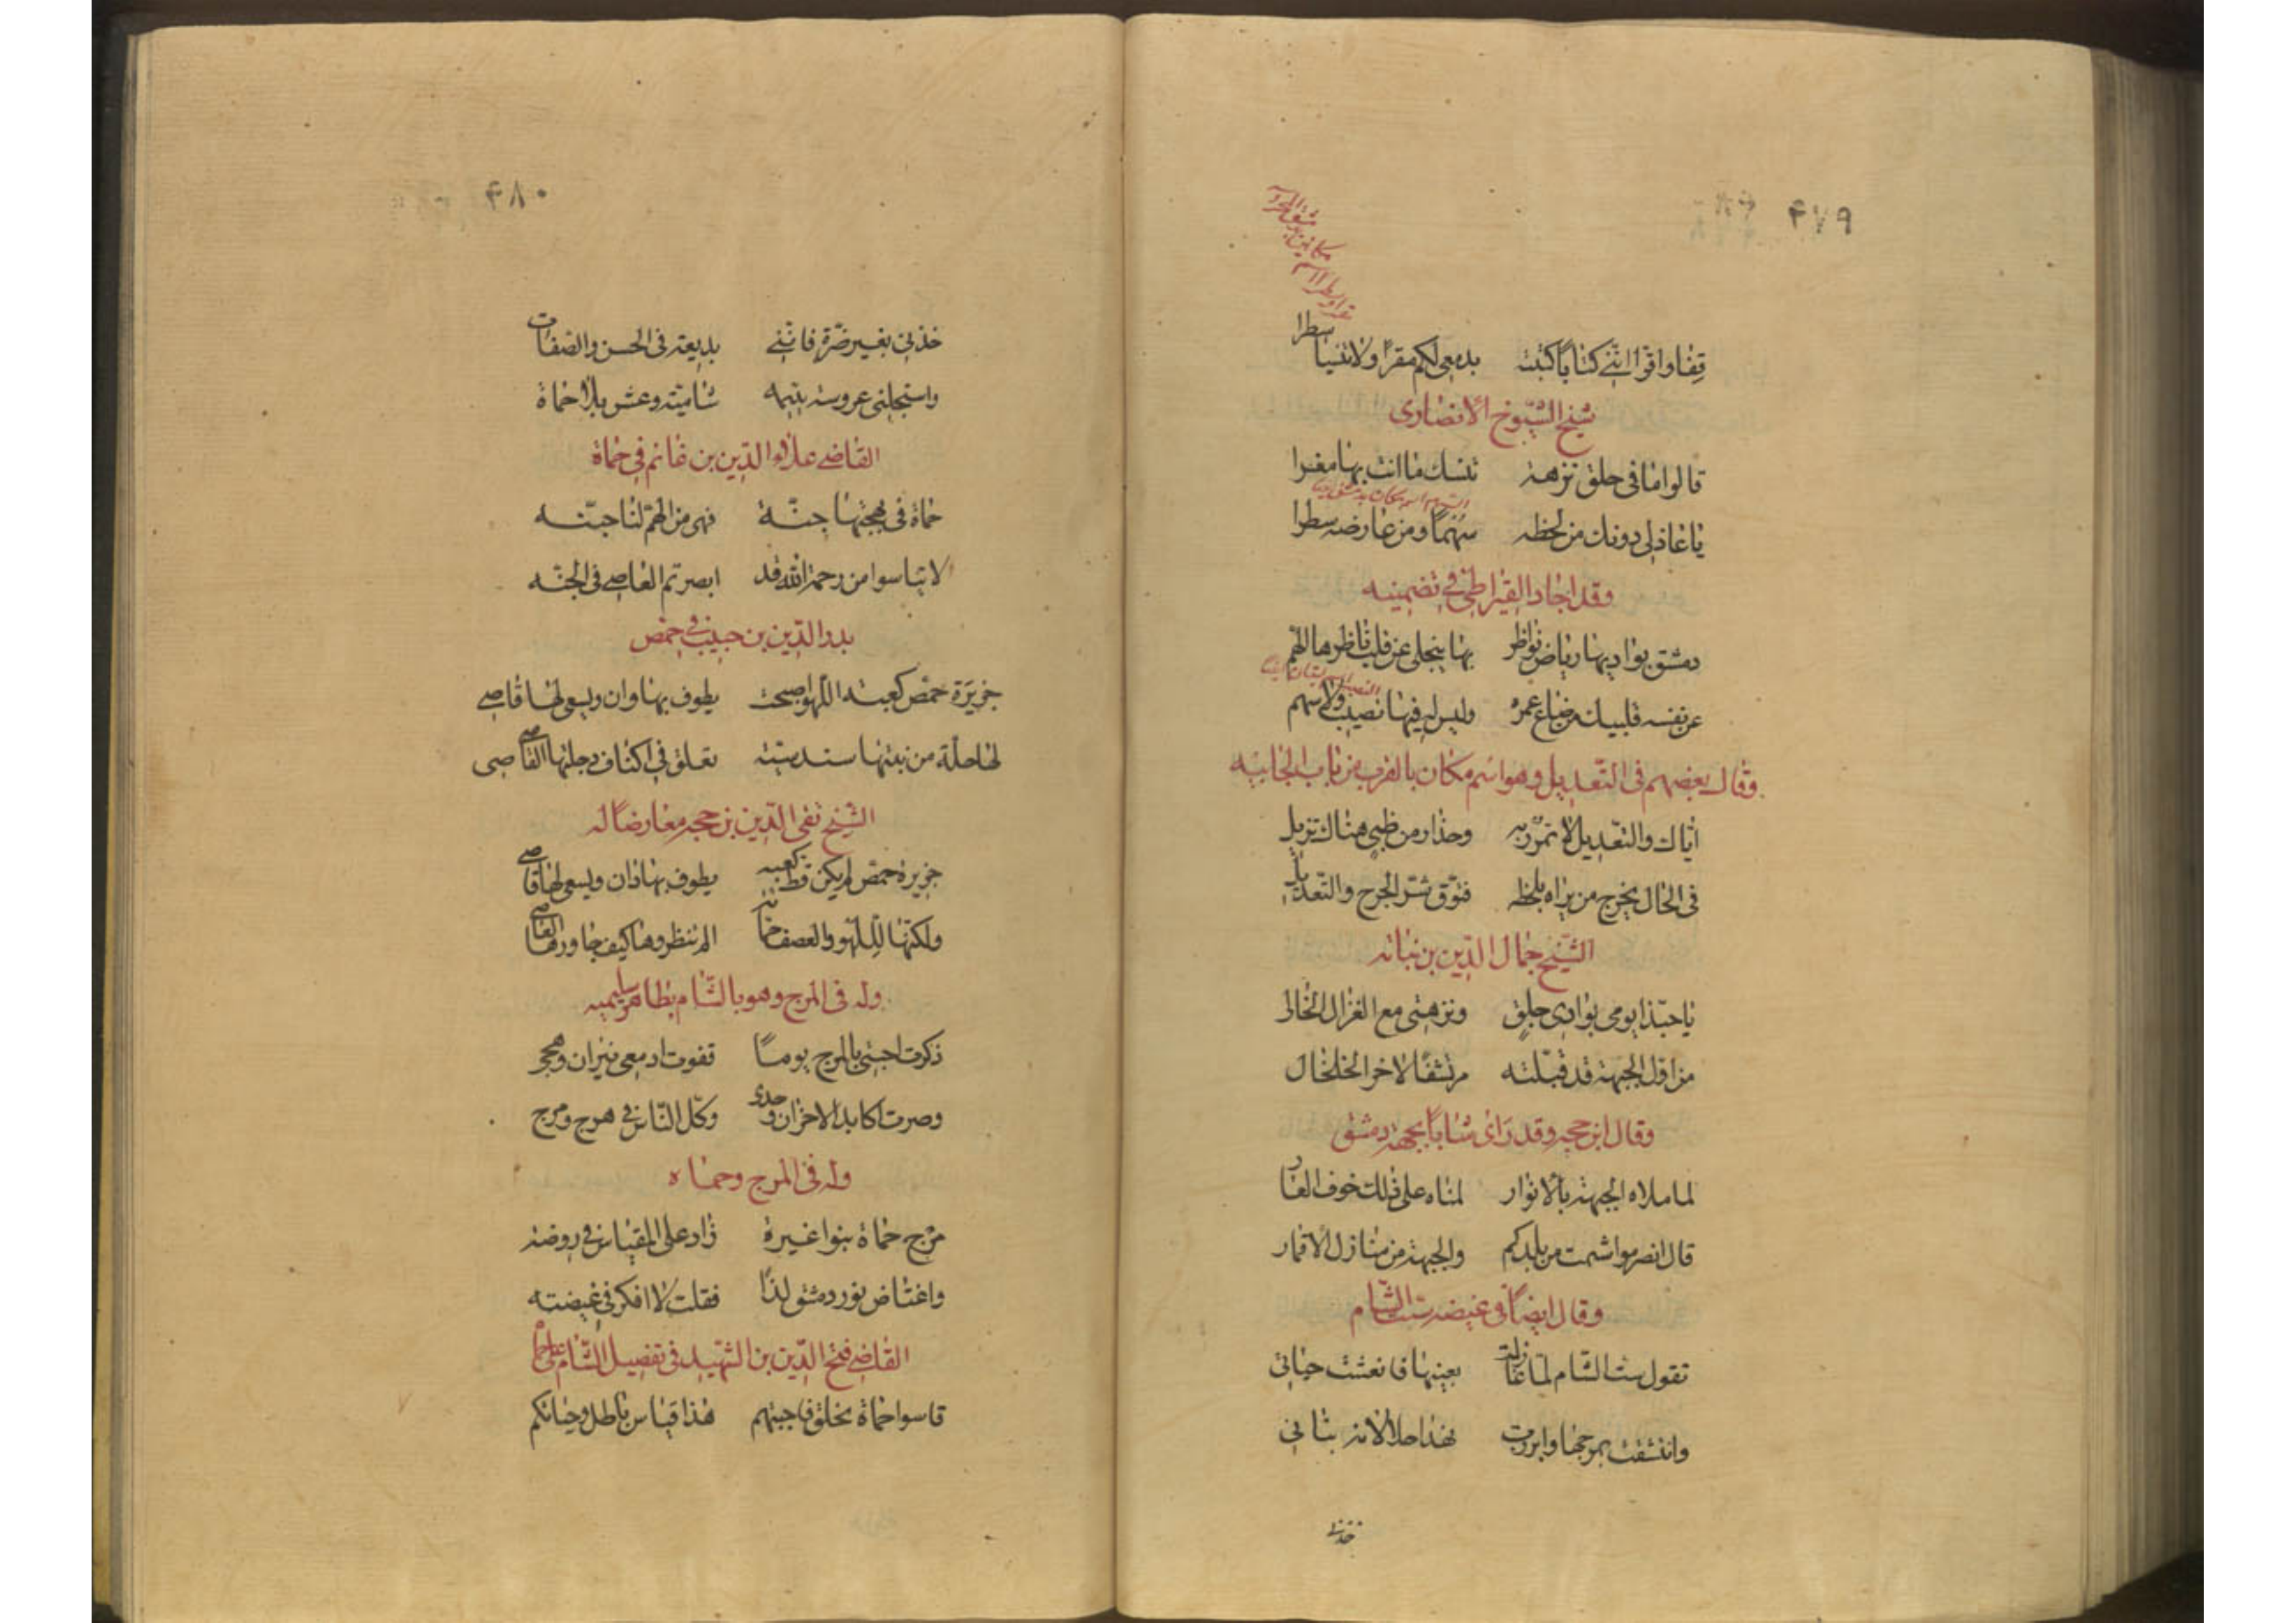 ٤٧٩
قفا واقرا انني كتابا كتبته بدمعي لكم مقرا ولا تنسيا سطرا
شيخ الشيوخ الانصاري
قالوا اما في جلق نزهة تنسك ما انت بها مغرا
يا عاذلي دونك من لحظه سهما ومن عارضه سطرا
وقد اجاد القيراطي في تضمينه
دمشق بواديها رياض نواظر بها ينجلي عن قلب ناظرها الهم
على نفسه فليبك من ضاع عمره وليس له فيها نصيب ولا سهم
وقال بعضهم في التعديل وهو اسم مكان بالقرب من باب الجابية
اياك والتعديل لا تمرر به وحذار من ظبي هناك نزيل
في الحال يجرح من يراه بلحظه فتوق شر الجرح والتعديل
الشيخ جمال الدين بن نباته
يا حبذا يومي بوادي جلق ونزهتي مع الغزال الحالي
من اول الجبهة قد قبلته مرتشفا لاخر الخلخال
وقال ابن حجه وقد راى شبابا بجبهة دمشق
لما ملاه الجبهة بالانوار لمناه على ذلك خوف العار
قال انصرموا شمت من بلدكم والجبهة من منازل الاقمار
وقال ايضا في غيضة ست الشام
تقول ست الشام لما غازلت بعينها فانعشت حياتي
وانتشقت بمرجها وابرزت نهدا حلا لانه نباتي
خذني
٤٨٠
خذني بغير ضرة فانني بديعة في الحسن والصفات
واستجلني عروسة يتيمه شامية وعش بلا حماة
القاضي علاء الدين بن غانم في حماة
حماة في بهجتها جنة فهي من الهم لنا جنه
لا تياسوا من رحمة الله قد ابصرتم العاصي في الجنه
بدر الدين بن حبيب في حمص
جزيرة حمص كعبة اللهو اصبحت يطوف بها وان ويسعى لها قاصي
لها حلة من نبتها سندسيه تعلق في اكناف دجلتها القاصي
الشيخ تقي الدين بن حجه معارضا له
جزيرة حمص لم يكن قط كعبه يطوف بها دان ويسعى لها قاصي
ولكنها للهو والعصف حانه الم تنظروها كيف جاورها العاصي
وله في المرج وهو بالشام بظاهر سليميه
ذكرت احبتي بالمرج يوما فقوت ادمعي نيران وهجي
وصرت اكابد الاحزان وحدي وكل الناس في هرج ومرج
وله في المرج وحماه
مرج حماة بنواعيره زاد على المقياس في روضته
واغتاض نور دمشق لذا فقلت لا افكر في غيضته
القاضي فتح الدين بن الشهيد في تفضيل الشام على حماه
قاسوا حماة بجلق فاجبتهم هذا قياس باطل وحياتكم